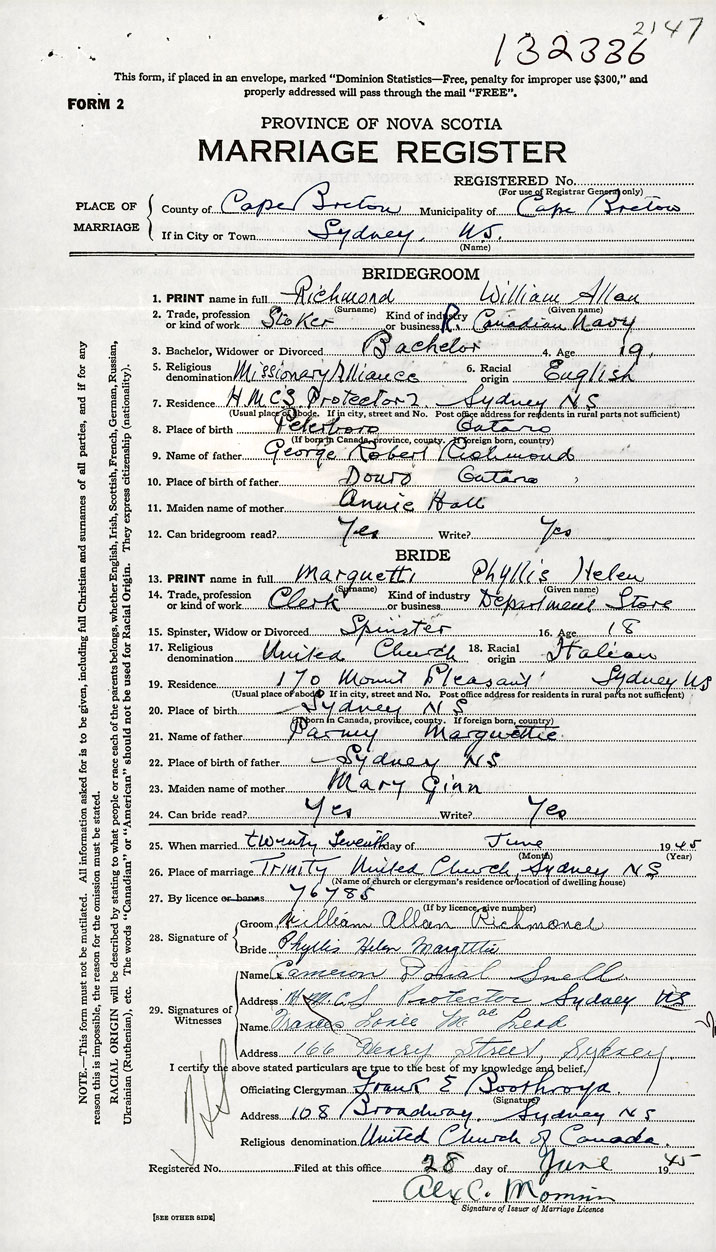 2147
132336
This form, if placed in an envelope, marked "Dominion Statistics—Free, penalty for improper use $300," and
properly addressed will pass through the mail "FREE".
FORM 2
PROVINCE OF NOVA SCOTIA
MARRIAGE REGISTER
REGISTERED No.
(For use of Registrar General only)
PLACE OF MARRIAGE
County of Cape Breton Municipality of Cape Breton
If in City or Town Sydney, N.S.
(Name)
BRIDEGROOM
1. PRINT name in full Richmond William Allan
(Surname) (Given name)
2. Trade, profession or kind of work Stoker Kind of industry or business R. Canadian Navy
3. Bachelor, Widower or Divorced Bachelor 4. Age 19.
5. Religious denomination Missionary Alliance 6. Racial origin English
7. Residence H.M.C.S Protector 2. Sydney NS
(Usual place of abode. If in city, street and No. Post office address for residents in rural parts not sufficient)
8. Place of birth Peterboro Ontario
(If born in Canada, province, county. If foreign born, country)
9. Name of father George Robert Richmond
10. Place of birth of father Douro Ontario
11. Maiden name of mother Annie Hall
12. Can bridegroom read? Yes Write? Yes
BRIDE
13. PRINT name in full Marquetti Phyllis Helen
(Surname) (Given name)
14. Trade, profession or kind of work Clerk Kind of industry or business Department Store
15. Spinster, Widow or Divorced Spinster 16. Age 18
17. Religious denomination United Church 18. Racial origin Italian
19. Residence 170 Mount Pleasant Sydney NS
(Usual place of abode. If in city, street and No. Post office address for residents in rural parts not sufficient)
20. Place of birth Sydney NS
(If born in Canada, province, county. If foreign born, country)
21. Name of father Marquettie
22. Place of birth of father Sydney NS
23. Maiden name of mother Mary Ginn
24. Can bride read? Yes Write? Yes
25. When married twenty Seventh day of June 1945
(Month) (Year)
26. Place of marriage Trinity United Church, Sydney NS
(Name of church or clergyman's residence or location of dwelling house)
27. By licence or banns 76785
(If by licence, give number)
28. Signature of
Groom William Allan Richmond
Bride Phyllis Helen
29. Signatures of Witnesses
Name Cameron Snell
Address H.M.C.S Protector Sydney NS
Name Frances
Address 166 Street, Sydney
I certify the above stated particulars are true to the best of my knowledge and belief.
Officiating Clergyman Frank E Boothroyd.
(Signature)
Address 108 Broadway. Sydney NS
Religious denomination United Church of Canada.
Registered No. Filed at this office 28 day of June 1945
Alex C.
Signature of Issuer of Marriage Licence
[SEE OTHER SIDE]
NOTE.—This form must not be mutilated. All information asked for is to be given, including full Christian and surnames of all parties, and if for any
reason this is impossible, the reason for the omission must be stated.
RACIAL ORIGIN will be described by stating to what people or race each of the parents belongs, whether English, Irish, Scottish, French, German, Russian,
Ukrainian (Ruthenian), etc. The words "Canadian" or "American" should not be used for Racial Origin. They express citizenship (nationality).